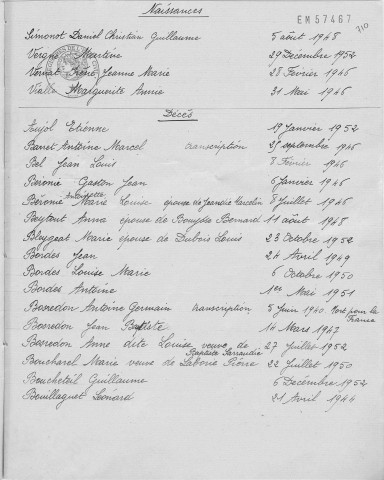 Naissances
EM57467
210
Simonot Daniel Christian Guillaume 5 août 1948
Vergne Martine 29 Décembre 1952
Vernat Irène Jeanne Marie 28 Février 1946
Vialle Marguerite Annie 31 Mai 1946
Décès
Aujol Etienne 19 Janvier 1952
Banet Antoine Marcel transcription 25 septembre 1946
Bel Jean Louis 8 Février 1946
Beronie Gaston Jean 6 Janvier 1946
Antoinette
Beronie Marie Louise épouse de Jeandie Marcelin 8 Juillet 1946
Baytout Anna épouse de Bouysse Bernard 11 août 1948
Bleygeat Marie épouse de Dubois Louis 23 Octobre 1952
Bordes Jean 24 Avril 1949
Bordes Louise Marie 6 Octobre 1950
Bordes Antoine 1er Mai 1951
Bosredon Antoine Germain transcription 5 Juin 1940 Mort pour la France
Bosredon Jean Baptiste 14 Mars 1947
Bosredon Anne dite Louise veuve de 27 Juillet 1952
Baptiste
Boucherel Marie veuve de Laborie Pierre 22 Juillet 1950
Boucheteil Guillaume 6 Décembre 1952
Bouillaguet Léonard 21 Avril 1944